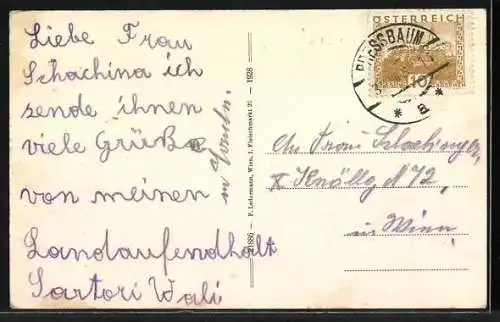 Liebe Frau
Schachina ich
sende ihnen
viele Grüße
von meinen
Landaufendhalt
Sartori Wali
P. Ledermann, Wien, I. Fleischmarkt 20 — 1928
ÖSTERREICH
10
PRESSBAUM
* B *
An Frau
X Knöllg. N 72,
in Wien